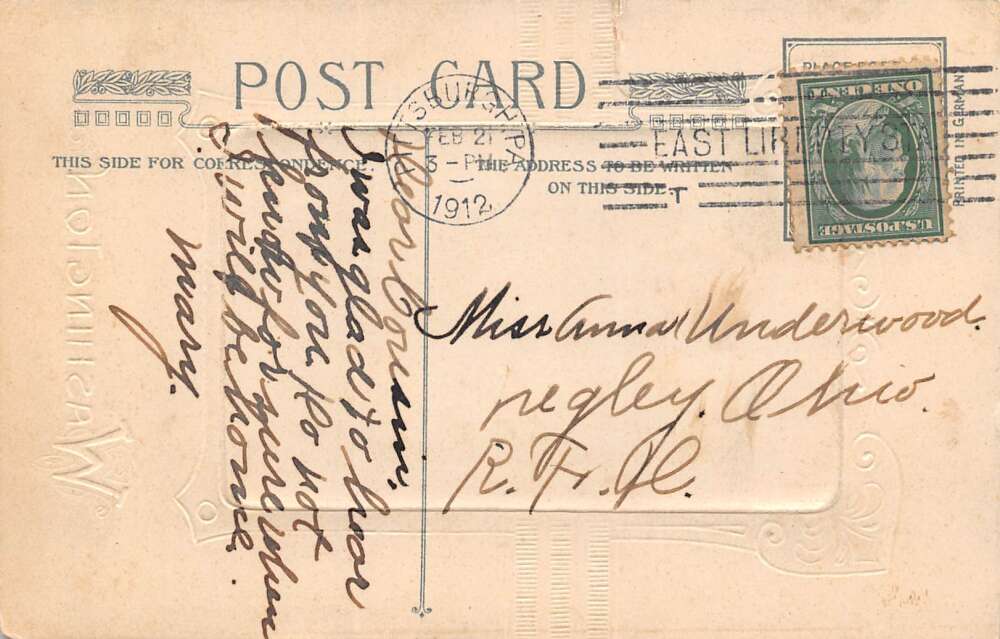 POST CARD
PLACE POST
THIS SIDE FOR CORRESPONDENCE
THE ADDRESS TO BE WRITTEN
ON THIS SIDE
PITTSBURGH, PA
FEB 21
3-PM
1912
EAST LIBERTY S
T
U.S. POSTAGE
ONE CENT
PRINTED IN GERMANY
Dear Cousin.
I was glad to hear
from you do not
know for sure when
I will be home.
Mary.
Miss Anna Underwood.
negley. Ohio.
R. F. D.
WASHINGTON